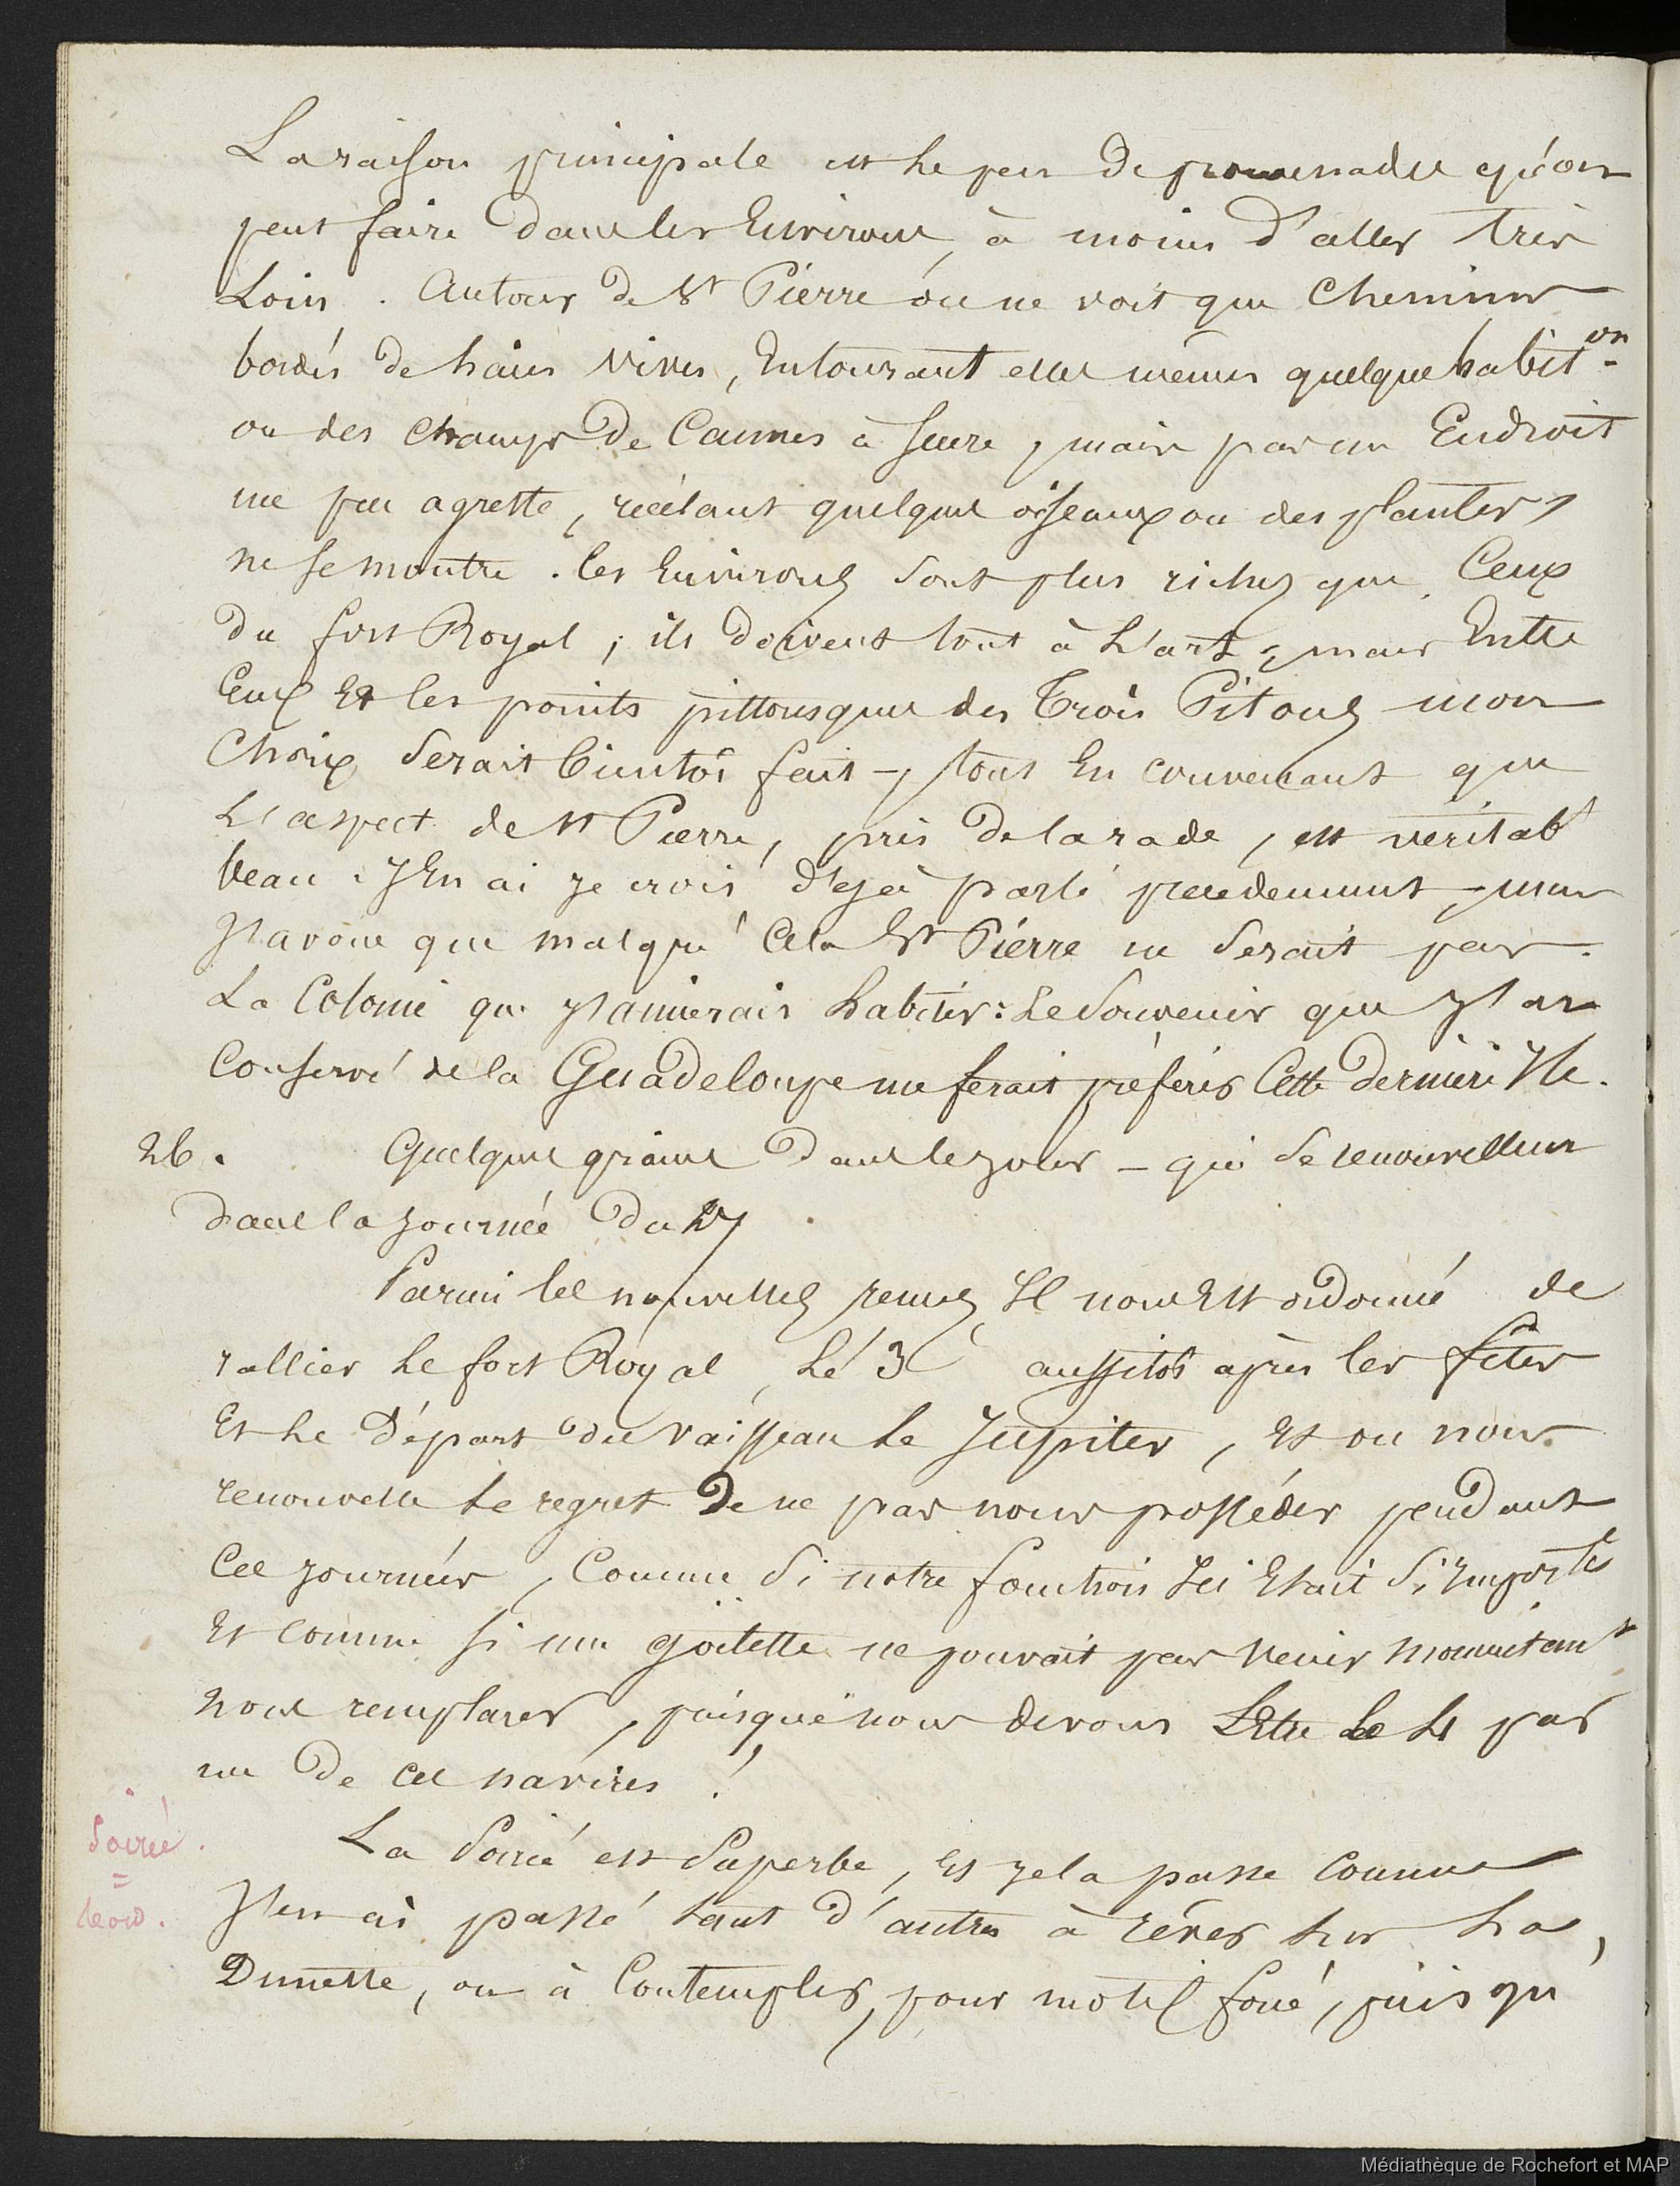 La raison principale est le peu de promenades qu'on
peut faire dans les Environs, à moins d'aller très
Loin. Autour de St Pierre on ne voit que Chemins
bordés de haies vives, Entourant elles mêmes quelque habiton
ou des champs de Cannes à sucre, mais pas un Endroit
un peu agreste, recélant quelques oiseaux ou des plantes,
ne se montre. les Environs sont plus riches que Ceux
du fort Royal; ils doivent tout à L'art, mais Entre
Eux Et les points pittoresques des Trois Pitons mon
Choix serait bientôt fait, tout En convenant que
L'aspect de St Pierre, pris de la rade, est véritabt
beau. J'En ai je crois déjà parlé précédemment, mais
J'avoue que malgré Cela St Pierre ne serait pas
La Colonie que J'aimerais habiter: Le souvenir que J'ai
Conservé de la Guadeloupe me ferait préférer Cette dernière Ile.
26. Quelques grains dans le jour - qui se renouvellent
dans la journée du 27
Parmi les nouvelles reçues, Il nous Est ordonné de
rallier le fort Royal, le 3 aussitôt après les fêtes
Et le Départ du vaisseau le Jupiter, Et on nous
renouvelle le regret de ne pas nous posséder pendant
Ces journées, Comme si notre fonction Ici Etait si Importte
Et comme si une goëlette ne pouvait pas venir momentant
nous remplacer, puisque nous devons L'Etre le 4 par
un de ces navires!
Soirée.
=
La Soirée est Superbe, Et je la passe Comme
J'en ai passé tant d'autres à rêver sur La
Dunette, ou à Contempler, pour motif foué, puisqu'